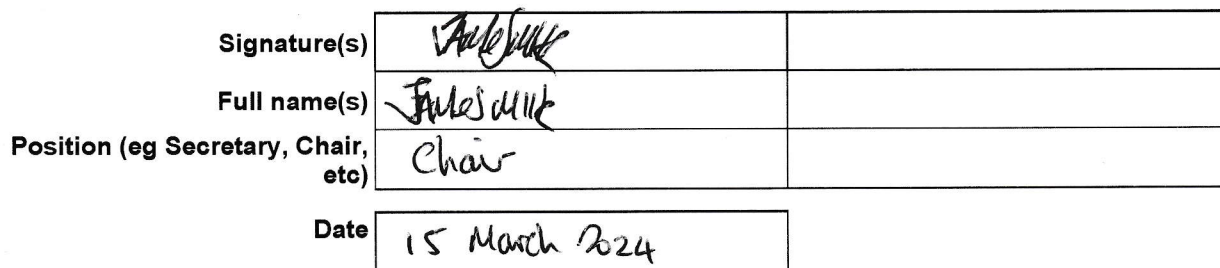 Signature(s)
Full name(s) James
Position (eg Secretary, Chair,
etc) Chair
Date 15 March 2024